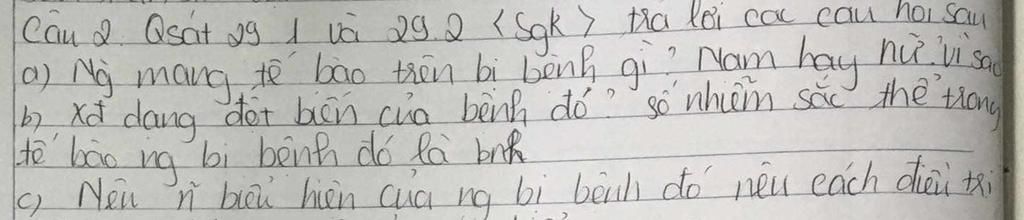 Câu 2. Qsát 29.1 và 29.2 <Sgk> trả lời các câu hỏi sau
a) Ng mang tế bào trên bị bệnh gì? Nam hay nữ. vì sao
b) xđ dạng đột biến của bệnh đó? số nhiễm sắc thể trong
tế bào ng bị bệnh đó là bnh
c) Nêu n~ biểu hiện của ng bị bệnh đó nêu cách điều trị